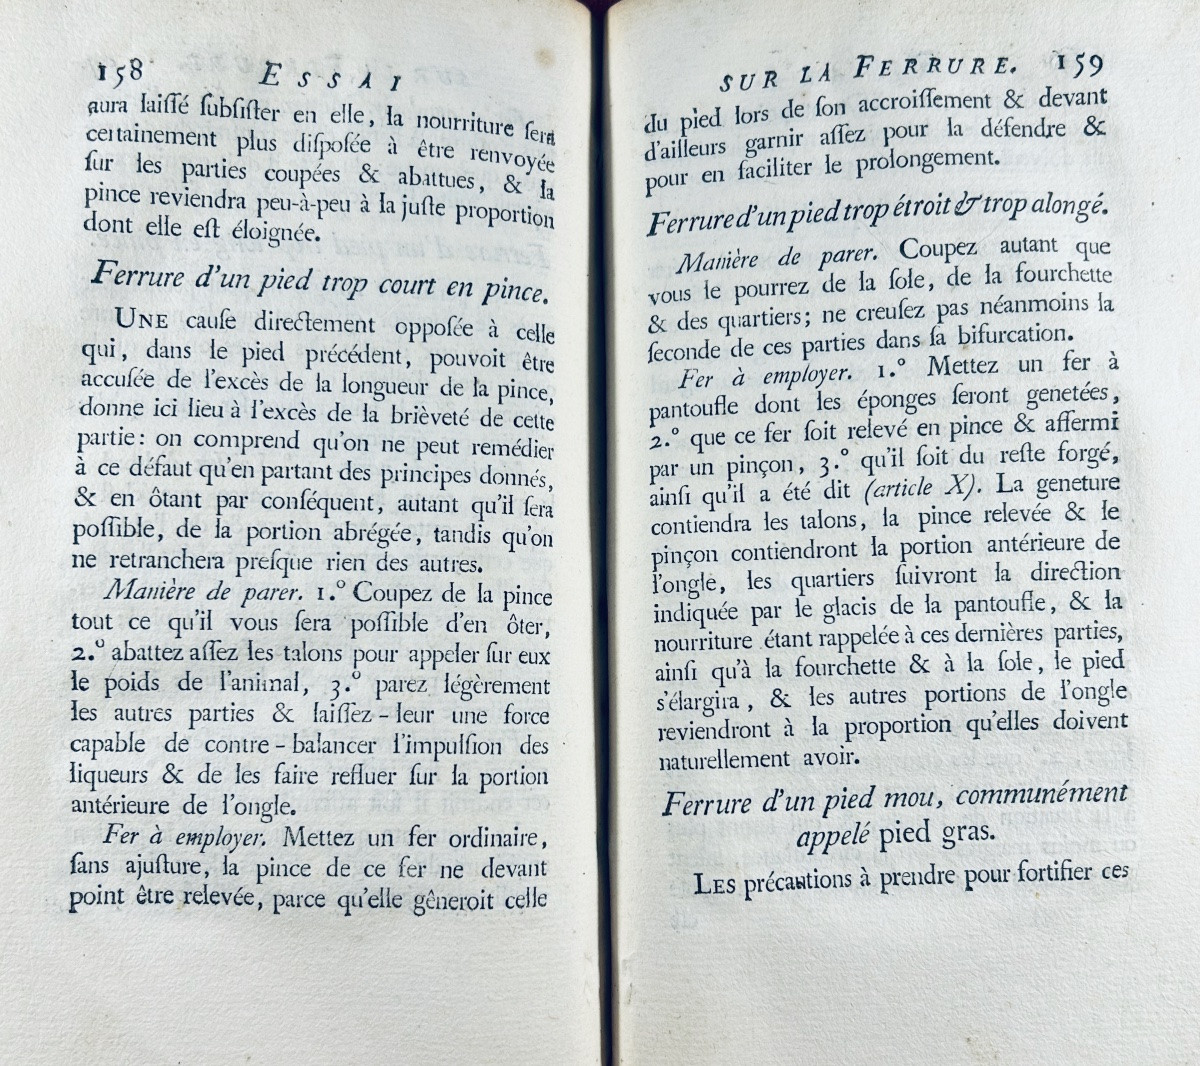 158 ESSAI
aura laiſſé ſubſiſter en elle, la nourriture ſera
certainement plus diſpoſée à être renvoyée
ſur les parties coupées & abattues, & la
pince reviendra peu-à-peu à la juſte proportion
dont elle eſt éloignée.
Ferrure d'un pied trop court en pince.
UNE cauſe directement oppoſée à celle
qui, dans le pied précédent, pouvoit être
accuſée de l'excès de la longueur de la pince,
donne ici lieu à l'excès de la brièveté de cette
partie: on comprend qu'on ne peut remédier
à ce défaut qu'en partant des principes donnés,
& en ôtant par conſéquent, autant qu'il ſera
poſſible, de la portion abrégée, tandis qu'on
ne retranchera preſque rien des autres.
Manière de parer. 1.º Coupez de la pince
tout ce qu'il vous ſera poſſible d'en ôter,
2.º abattez aſſez les talons pour appeler ſur eux
le poids de l'animal, 3.º parez légèrement
les autres parties & laiſſez-leur une force
capable de contre-balancer l'impulſion des
liqueurs & de les faire refluer ſur la portion
antérieure de l'ongle.
Fer à employer. Mettez un fer ordinaire,
ſans ajuſture, la pince de ce fer ne devant
point être relevée, parce qu'elle gêneroit celle
SUR LA FERRURE. 159
du pied lors de ſon accroiſſement & devant
d'ailleurs garnir aſſez pour la défendre &
pour en faciliter le prolongement.
Ferrure d'un pied trop étroit & trop alongé.
Manière de parer. Coupez autant que
vous le pourrez de la ſole, de la fourchette
& des quartiers; ne creuſez pas néanmoins la
ſeconde de ces parties dans ſa bifurcation.
Fer à employer. 1.º Mettez un fer à
pantoufle dont les éponges ſeront genetées,
2.º que ce fer ſoit relevé en pince & affermi
par un pinçon, 3.º qu'il ſoit du reſte forgé,
ainſi qu'il a été dit (article X). La geneture
contiendra les talons, la pince relevée & le
pinçon contiendront la portion antérieure de
l'ongle, les quartiers ſuivront la direction
indiquée par le glacis de la pantoufle, & la
nourriture étant rappelée à ces dernières parties,
ainſi qu'à la fourchette & à la ſole, le pied
s'élargira, & les autres portions de l'ongle
reviendront à la proportion qu'elles doivent
naturellement avoir.
Ferrure d'un pied mou, communément
appelé pied gras.
LES précautions à prendre pour fortifier ces